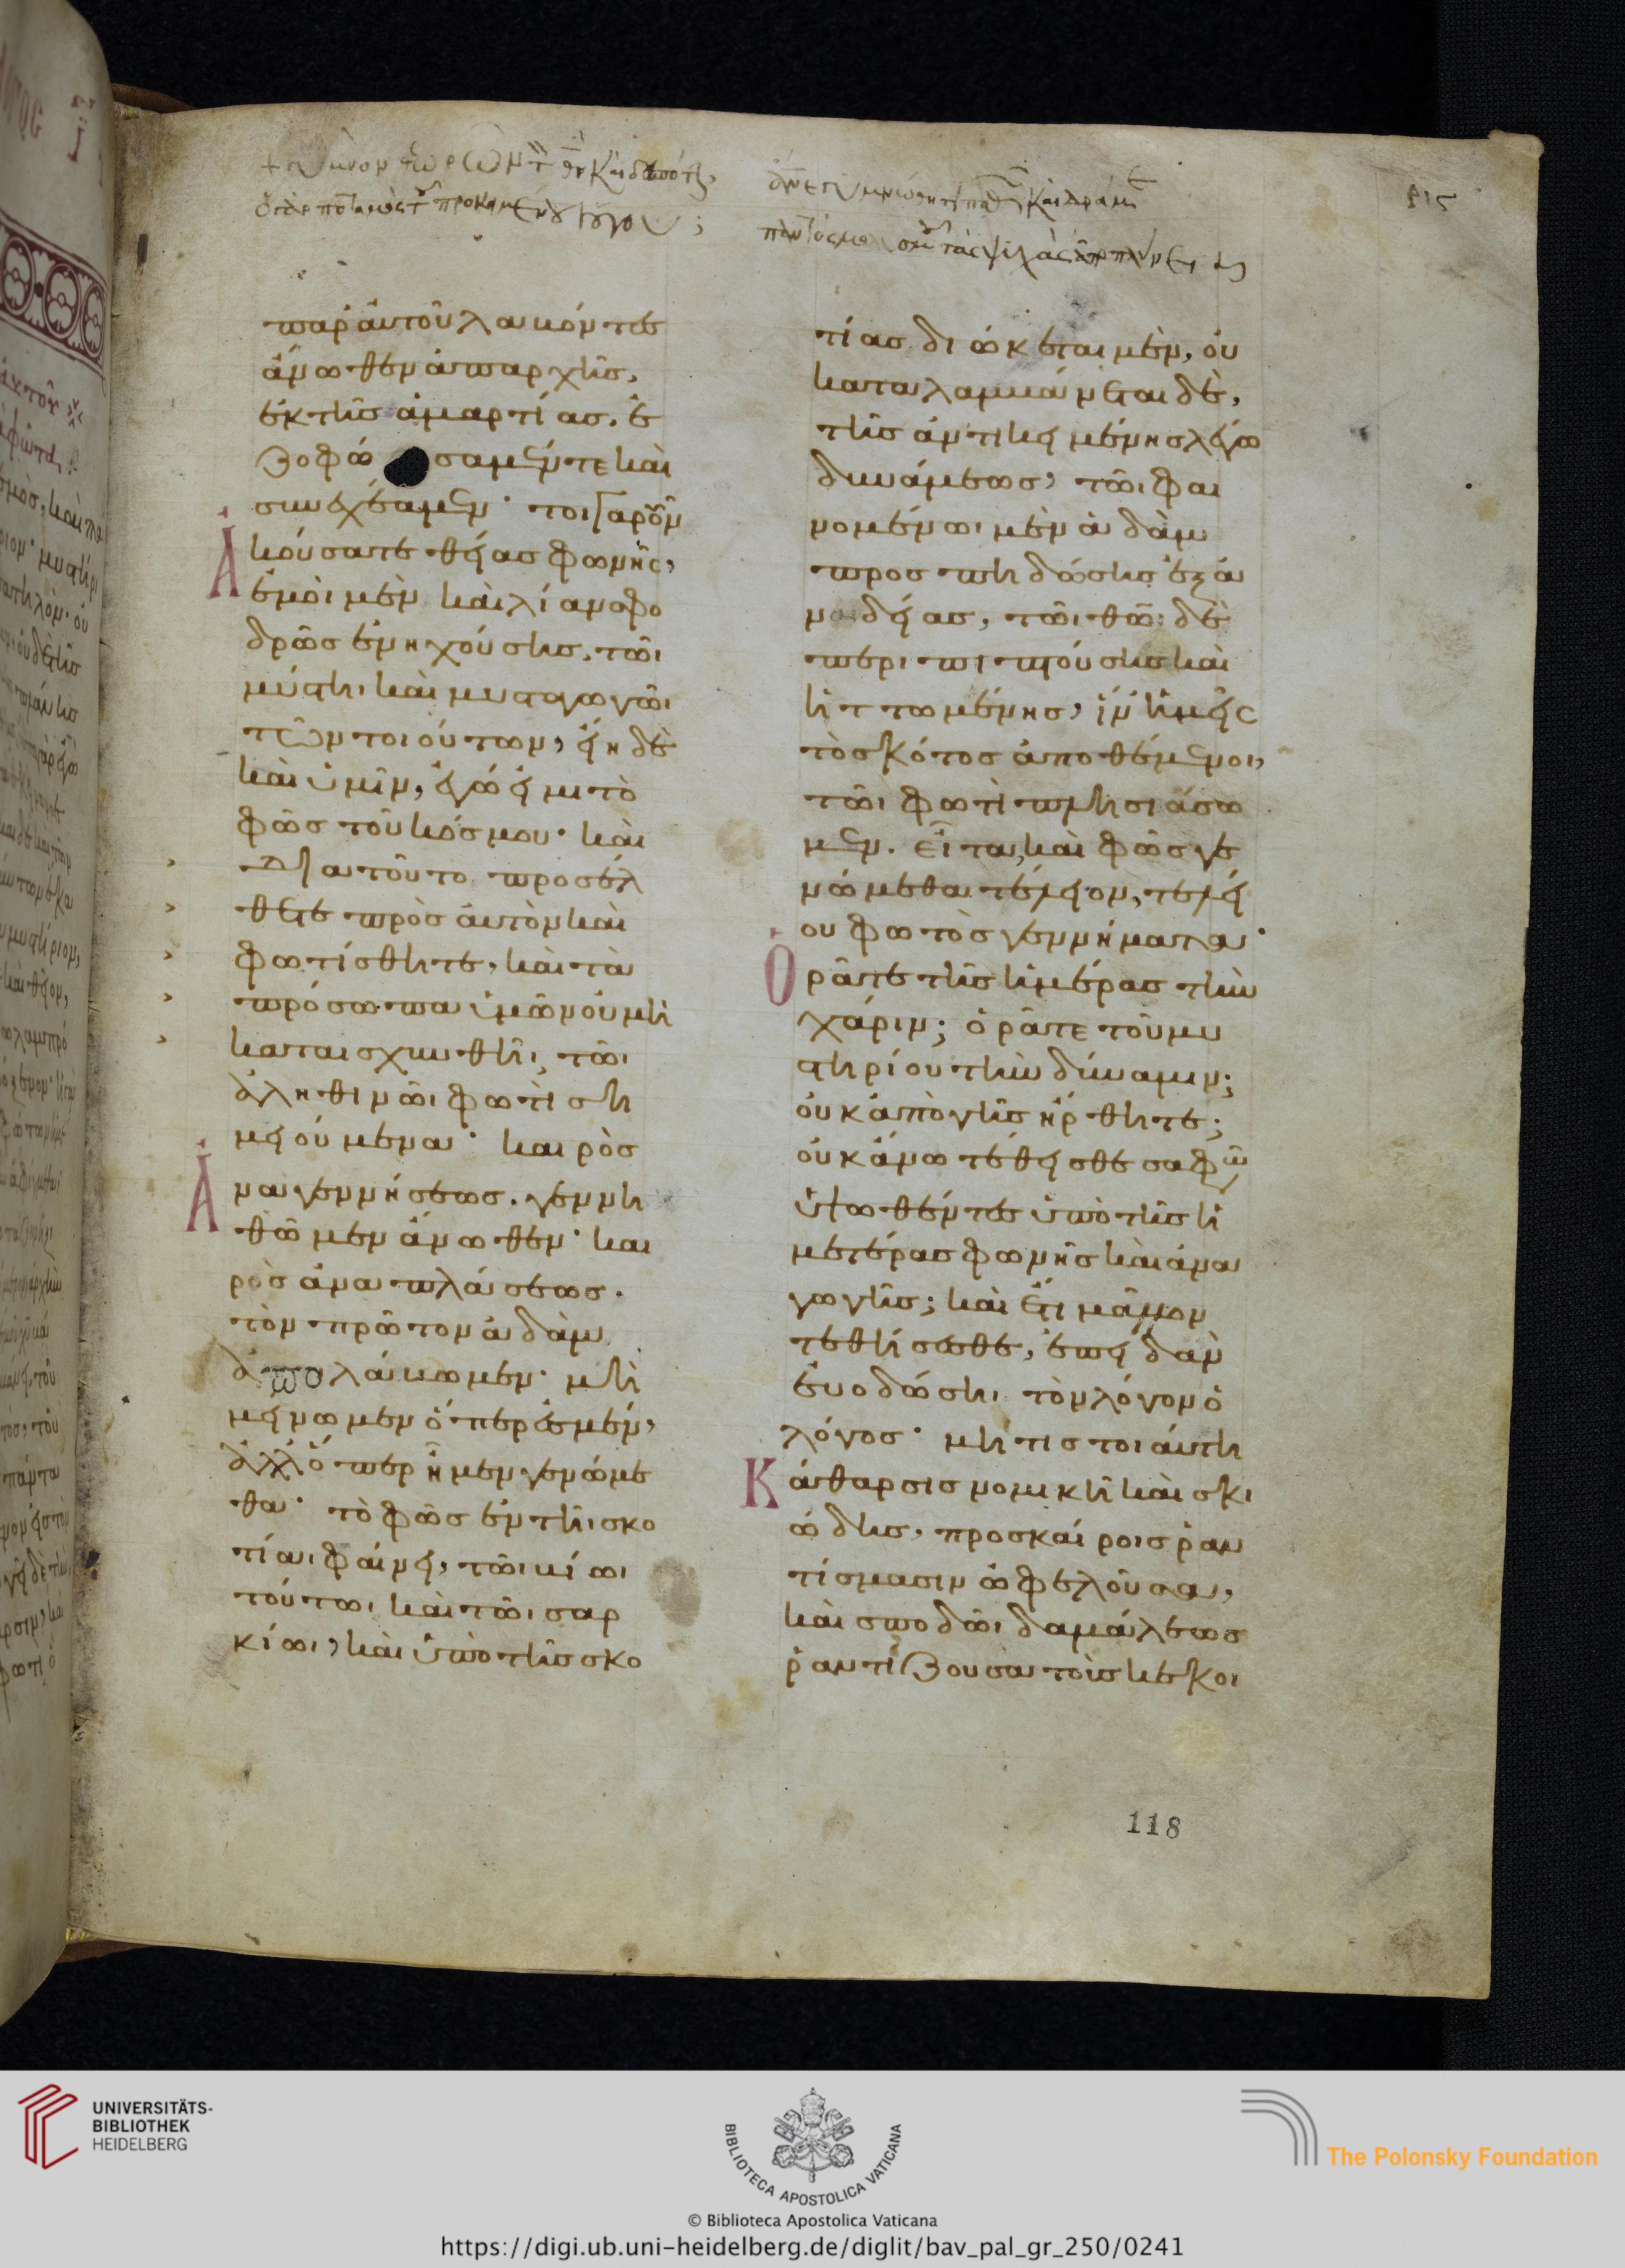 παρ' αὐτοῦ λαβόντες
ἄνωθεν ἀπαρχῆς,
ἐκ τῆς ἁμαρτίας, ἐ
ζοφώ σαμέν τε καὶ
συνεχέαμεν· τοιγαροῦν
Ἀκούσατε θείας φωνῆς,
ἐμοὶ μὲν καὶ λίαν σφο
δρῶς ἐνηχούσης, τῶι
μύστηι καὶ μυσταγωγῶι
τῶν τοιούτων, εἴη δὲ
καὶ ὑμῖν, ἐγώ εἰμι τὸ
φῶς τοῦ κόσμου· καὶ
διατοῦτο προσέλ
θετε πρὸς αὐτὸν καὶ
φωτίσθητε, καὶ τὰ
πρόσωπα ὑμῶν οὐ μὴ
καταισχυνθῆι, τῶι
ἀληθινῶι φωτὶ ση
μειούμενα· καιρὸς
Ἀναγεννήσεως. γεννη
θῶμεν ἄνωθεν· και
ρὸς ἀναπλάσεως.
τὸν πρῶτον ἀδὰμ
ἀπολάβωμεν· μὴ
μείνωμεν ὅπερ ἐσμέν,
ἀλλ' ὅπερ ἦμεν γενώμε
θα· τὸ φῶς ἐν τῆι σκο
τίαι φαίνει, τῶι βίωι
τούτωι καὶ τῶι σαρ
κίωι, καὶ ὑπὸ τῆς σκο
ριϛ
τίας διώκεται μὲν, οὐ
καταλαμβάνεται δὲ,
τῆς ἀντικειμένης λέγω
δυνάμεως, τῶι φαι
νομένωι μὲν ἀδὰμ
προσπηδώσης ἐξ ἀ
ναιδείας, τῶι θῶι δὲ
περιπιπτούσης καὶ
ἡττωμένης, ἵν' ἡμεῖς
τὸ σκότος ἀποθέμενοι,
τῶι φωτὶ πλησιάσω
μεν. εἶτα καὶ φῶς γε
νώμεθα τέλειον, τελεί
ου φωτὸς γεννήματα·
Ὁρᾶτε τῆς ἡμέρας τὴν
χάριν; ὁρᾶτε τοῦ μυ
στηρίου τὴν δύναμιν;
οὐκ ἀπὸ γῆς ἤρθητε;
οὐκ ἄνω τέθεισθε σαφῶς
ὑψωθέντες ὑπὸ τῆς ἡ
μετέρας φωνῆς καὶ ἀνα
γωγῆς; καὶ ἔτι μᾶλλον
τεθήσεσθε, ἐπειδὰν
εὐοδώσηι τὸν λόγον ὁ
λόγος· μή τις τοιαύτη
Κάθαρσις νομικὴ καὶ σκι
ώδης, προσκαίροις ῥαν
τίσμασιν ὠφελοῦσα,
καὶ σποδῶι δαμάλεως
ῥαντίζουσα τοὺς κεκοι
118
UNIVERSITÄTS-
BIBLIOTHEK
HEIDELBERG
BIBLIOTECA APOSTOLICA VATICANA
The Polonsky Foundation
© Biblioteca Apostolica Vaticana
https://digi.ub.uni-heidelberg.de/diglit/bav_pal_gr_250/0241